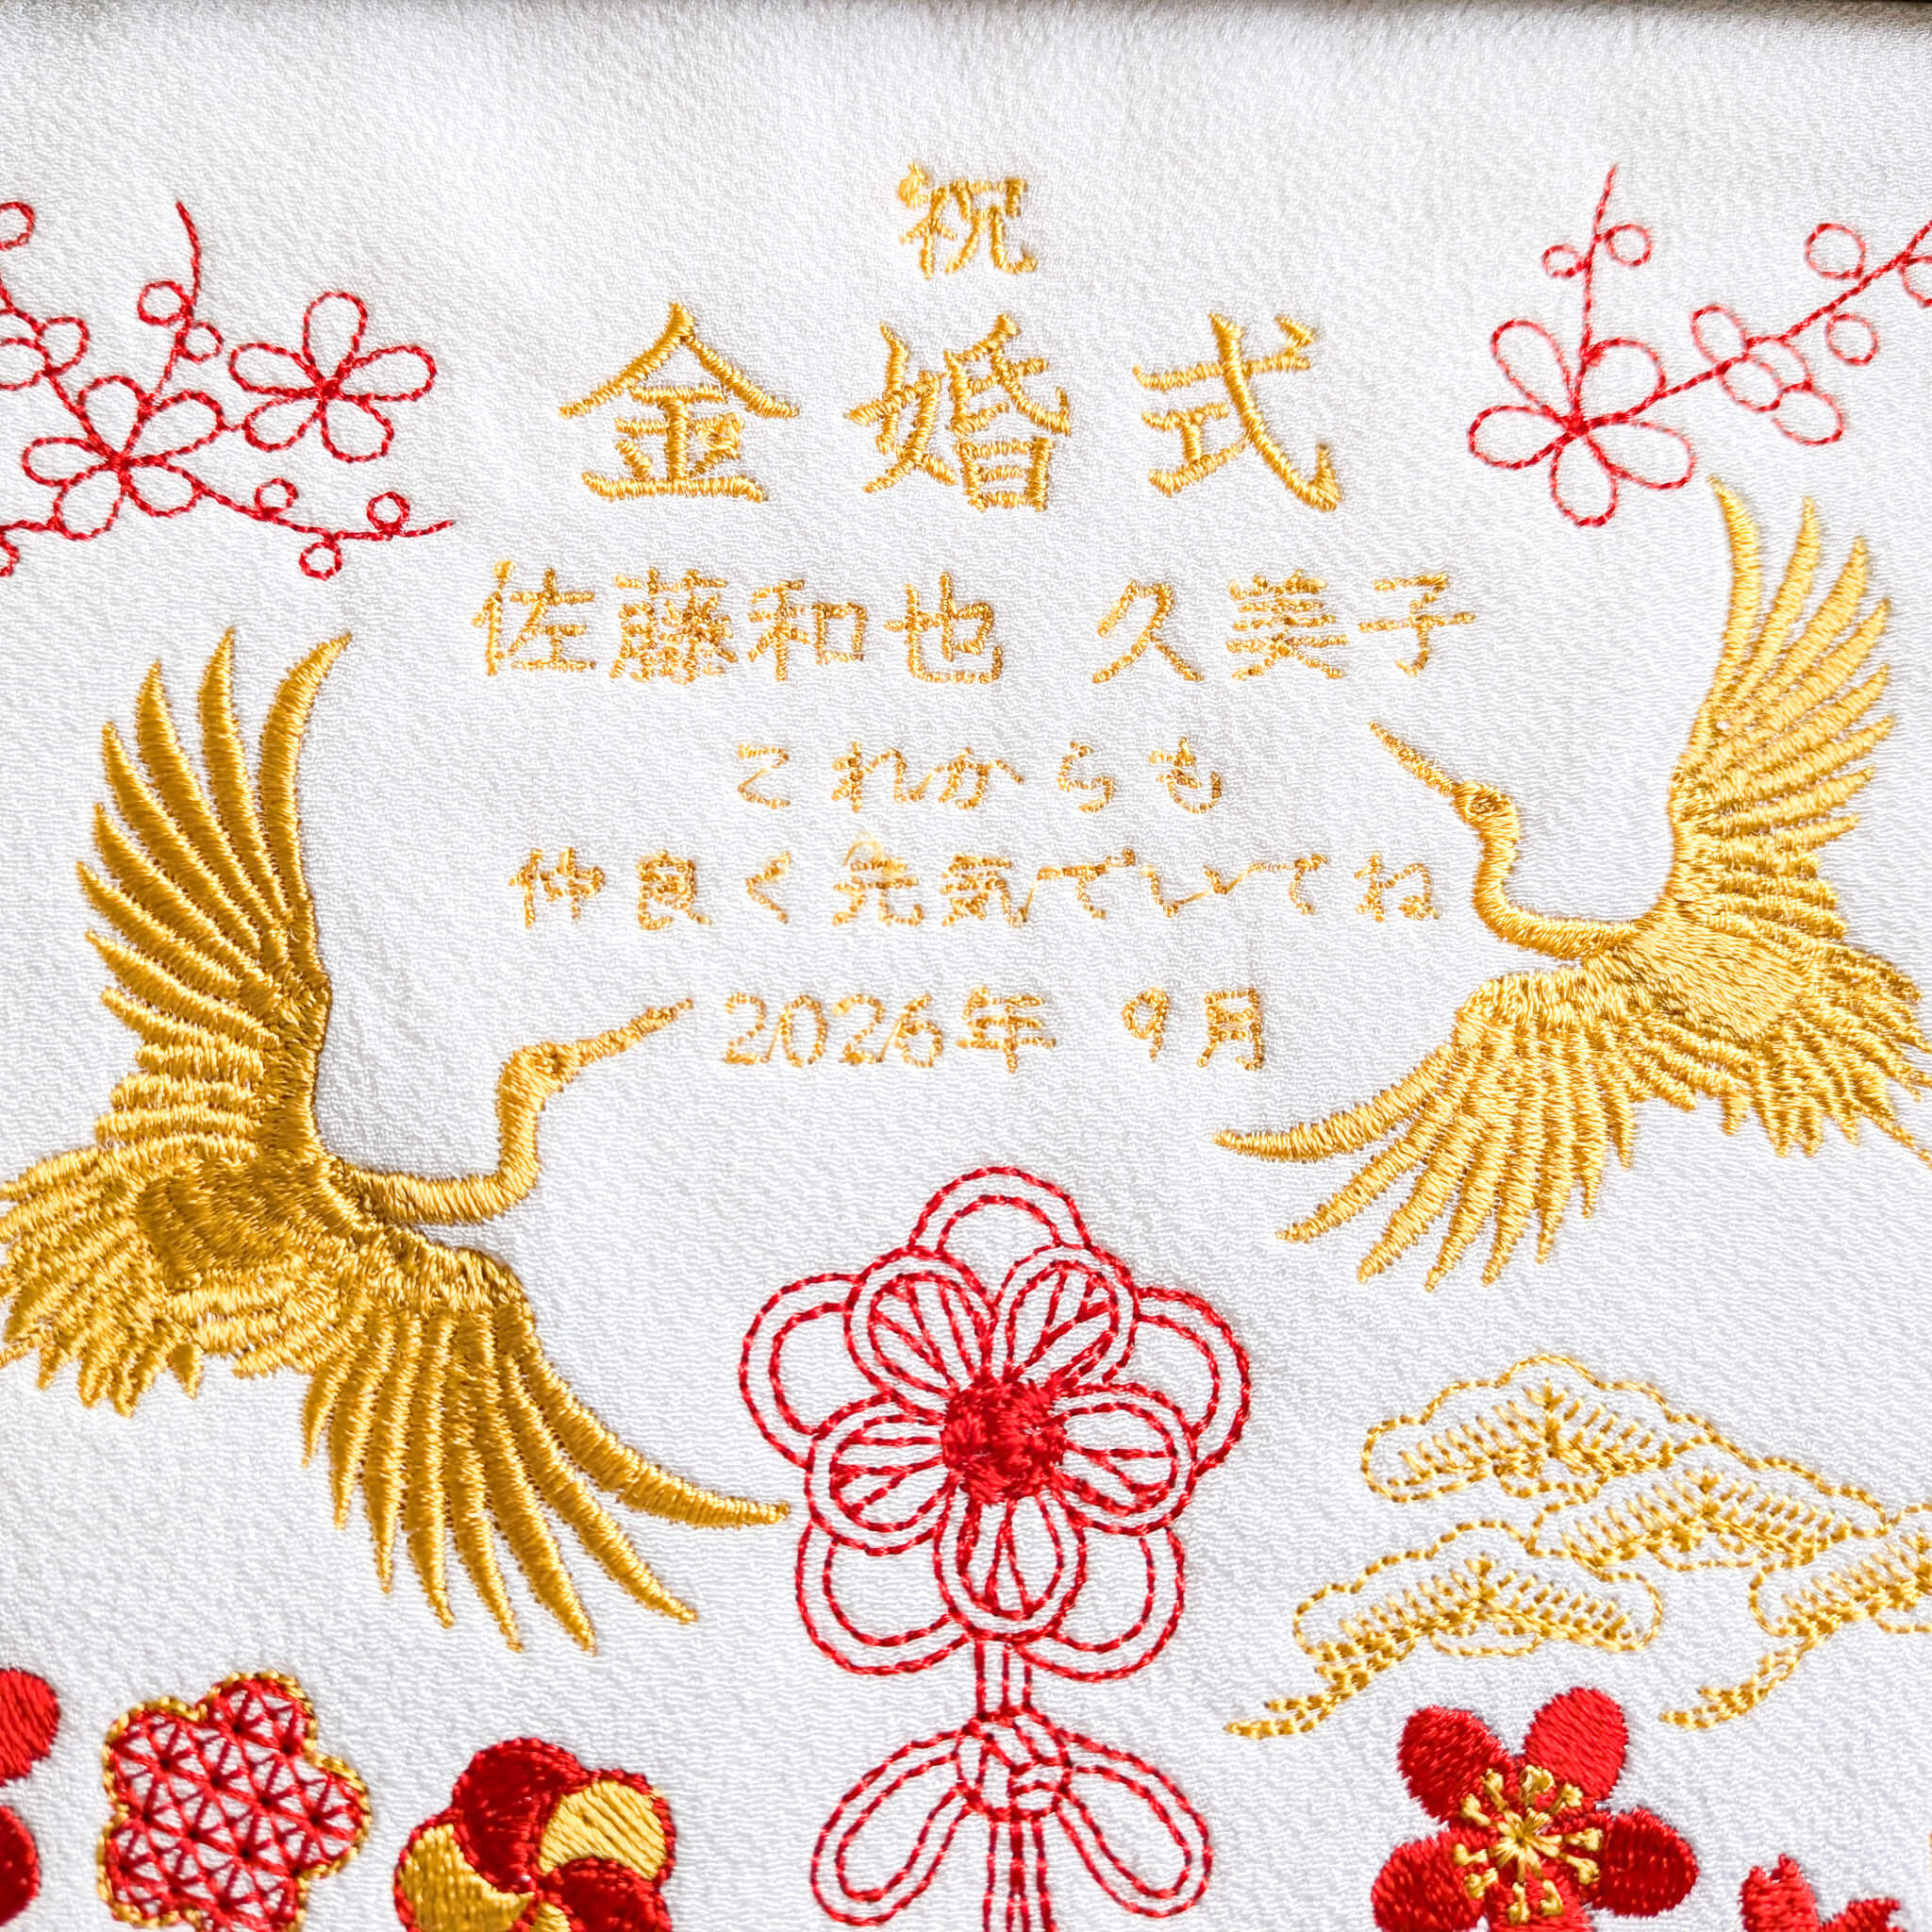 祝
金婚式
佐藤和也 久美子
これからも
仲良く元気でいてね
2026年 9月